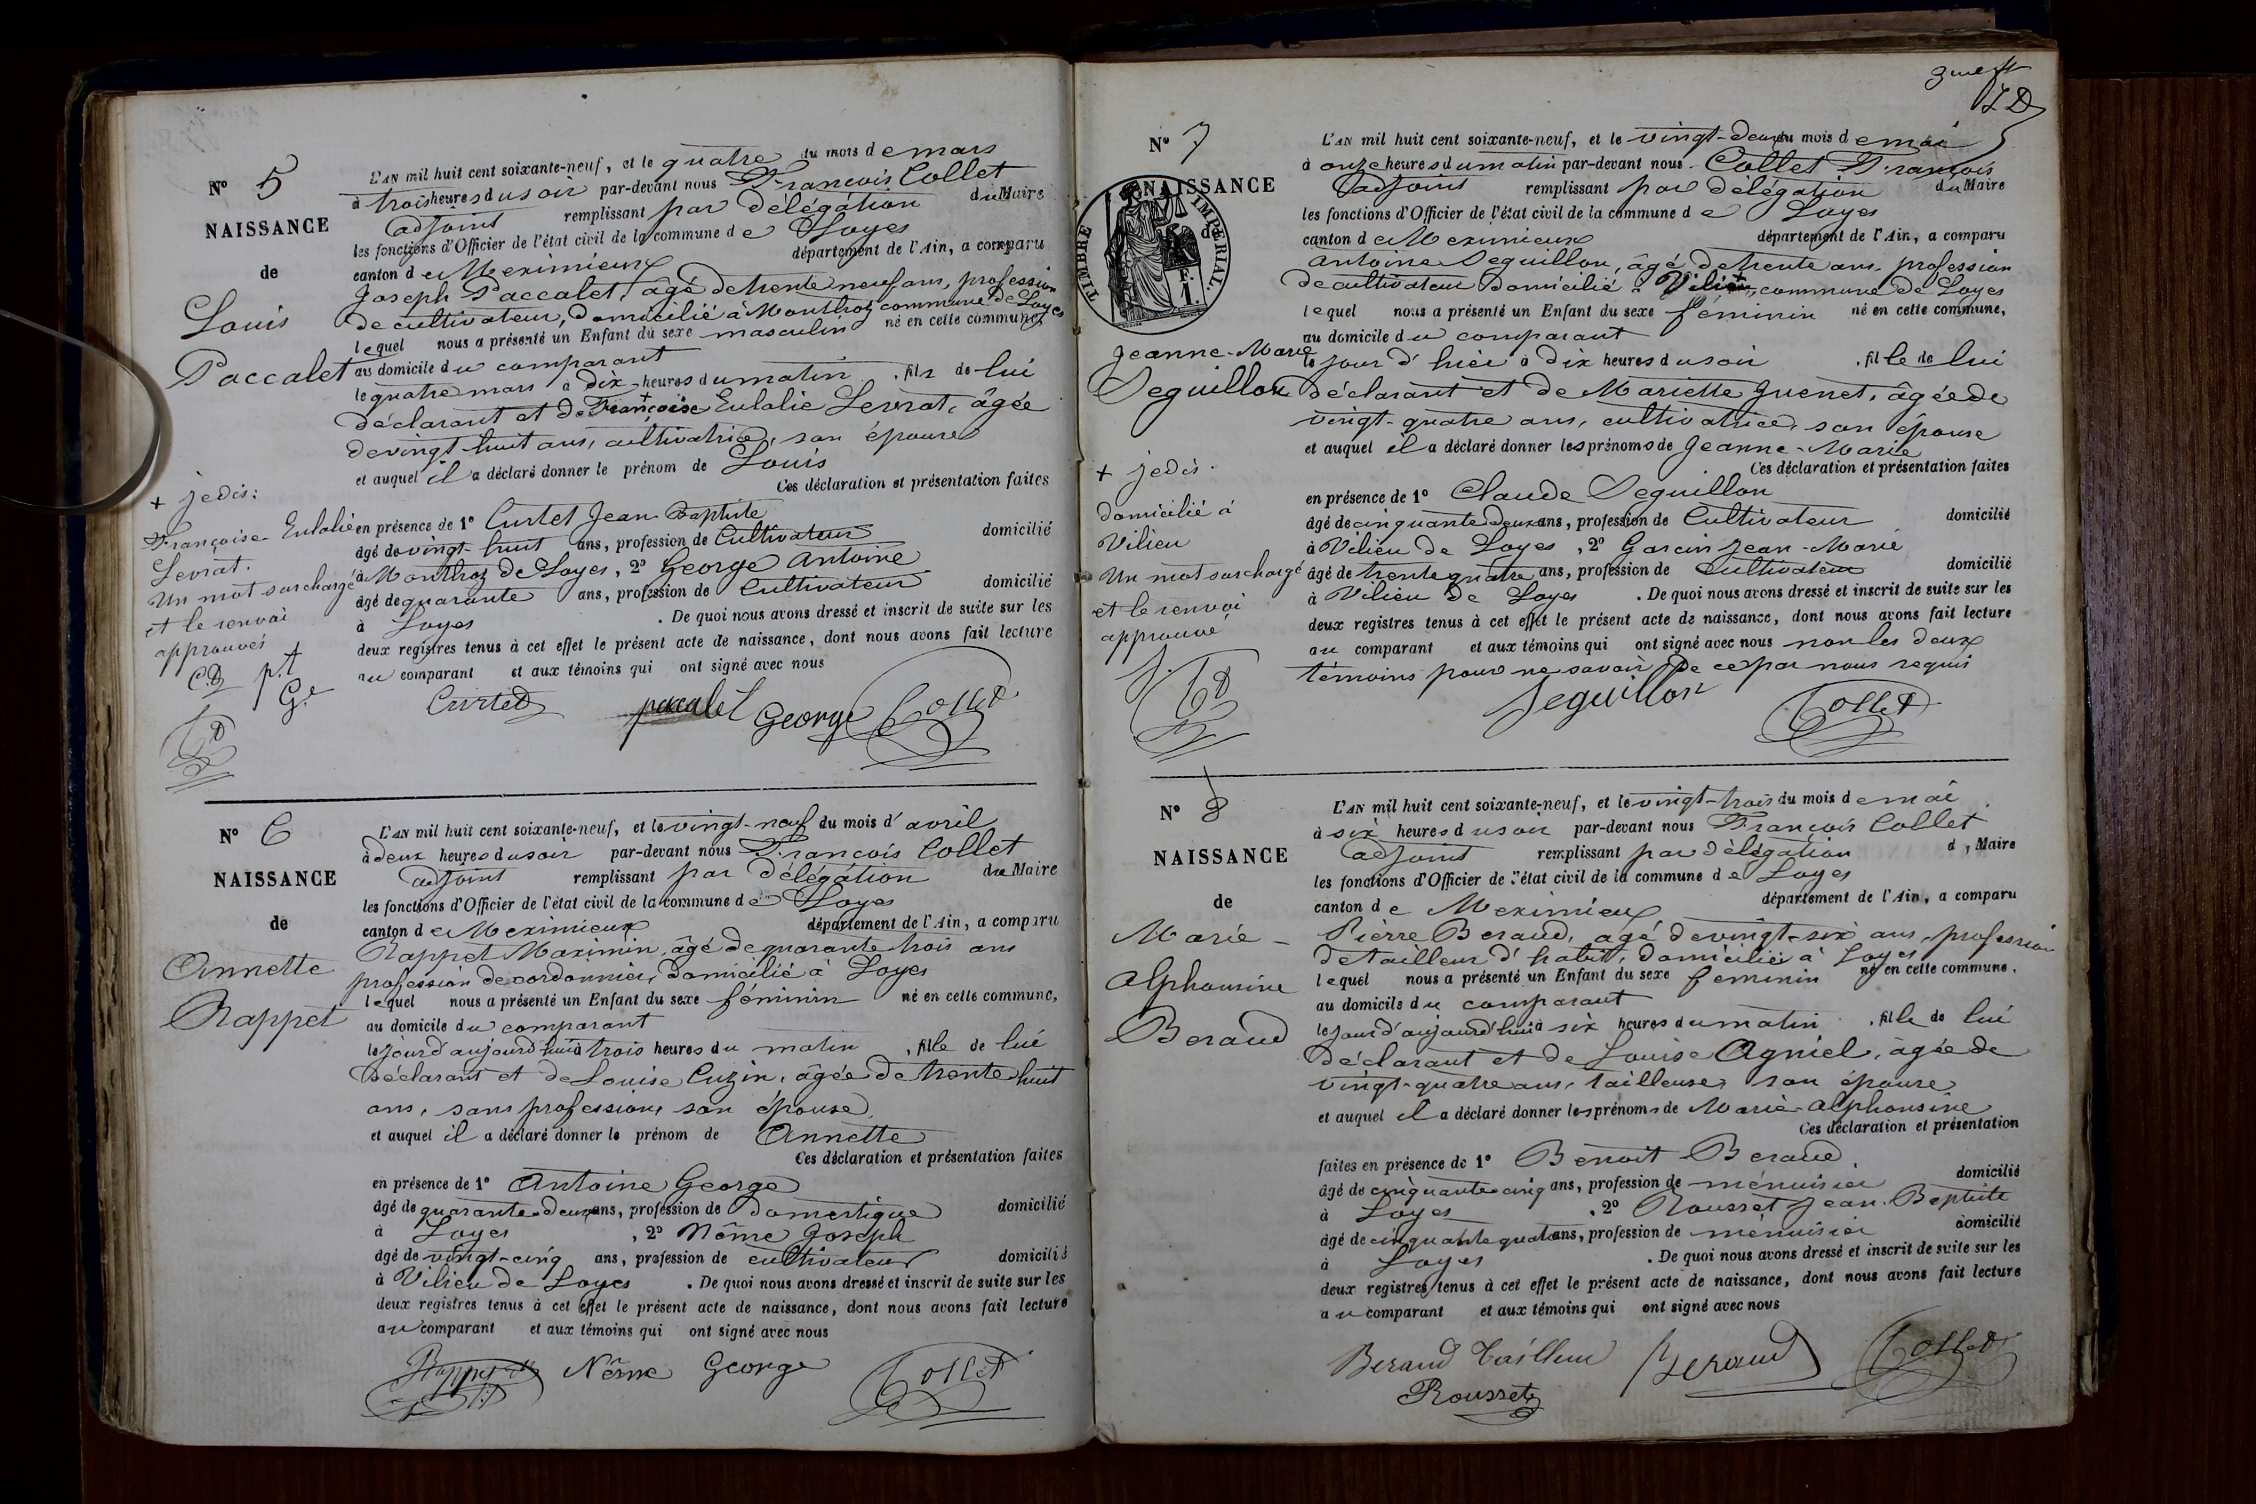 N° 5
NAISSANCE
de
Louis
Paccalet
L'AN mil huit cent soixante-neuf, et le quatre du mois de mars
à trois heures du soir par-devant nous François Collet
adjoint remplissant par délégation du Maire
les fonctions d'Officier de l'état civil de la commune de Loyes
canton de Meximieux département de l'Ain, a comparu
Joseph Paccalet, âgé de trente neuf ans, profession
de cultivateur, domicilié à Monthoz commune de Loyes
lequel nous a présenté un Enfant du sexe masculin né en cette commune,
au domicile du comparant
le quatre mars à dix heures du matin, fils de lui
déclarant et de Françoise + Eulalie Levrat, âgée
de vingt huit ans, cultivatrice, son épouse
et auquel il a déclaré donner le prénom de Louis
Ces déclaration et présentation faites
en présence de 1° Curtet Jean-Baptiste
âgé de vingt-huit ans, profession de Cultivateur domicilié
à Monthoz de Loyes, 2° George Antoine
âgé de quarante ans, profession de Cultivateur domicilié
à Loyes. De quoi nous avons dressé et inscrit de suite sur les
deux registres tenus à cet effet le présent acte de naissance, dont nous avons fait lecture
au comparant et aux témoins qui ont signé avec nous
+ je dis:
Françoise-Eulalie
Levrat.
Un mot surchargé
et le renvoi
approuvés
Curtet paccalet George Collet
N° 6
NAISSANCE
de
Annette
Rappet
L'AN mil huit cent soixante-neuf, et le vingt-neuf du mois d'avril
à deux heures du soir par-devant nous François Collet
adjoint remplissant par délégation du Maire
les fonctions d'Officier de l'état civil de la commune de Loyes
canton de Meximieux département de l'Ain, a comparu
Rappet Maximin, âgé de quarante trois ans
profession de cordonnier, domicilié à Loyes
lequel nous a présenté un Enfant du sexe féminin né en cette commune,
au domicile du comparant
le jour d'aujourd'hui à trois heures du matin, fille de lui
déclarant et de Louise Cuzin, âgée de trente huit
ans, sans profession, son épouse
et auquel il a déclaré donner le prénom de Annette
Ces déclaration et présentation faites
en présence de 1° Antoine George
âgé de quarante deux ans, profession de domestique domicilié
à Loyes, 2° Nême Joseph
âgé de vingt-cinq ans, profession de cultivateur domicilié
à Vilieu de Loyes. De quoi nous avons dressé et inscrit de suite sur les
deux registres tenus à cet effet le présent acte de naissance, dont nous avons fait lecture
au comparant et aux témoins qui ont signé avec nous
Rappet Nême George Collet
3me ft
N° 7
NAISSANCE
de
TIMBRE IMPÉRIAL
1 F.
Jeanne-Marie
Seguillon
L'AN mil huit cent soixante-neuf, et le vingt-deux du mois de mai
à onze heures du matin par-devant nous Collet François
adjoint remplissant par délégation du Maire
les fonctions d'Officier de l'état civil de la commune de Loyes
canton de Meximieux département de l'Ain, a comparu
Antoine Seguillon, âgé de trente ans, profession
de cultivateur domicilié à Vilieu + commune de Loyes
lequel nous a présenté un Enfant du sexe féminin né en cette commune,
au domicile du comparant
le jour d'hier à dix heures du soir, fille de lui
déclarant et de Mariette Guenet, âgée de
vingt-quatre ans, cultivatrice, son épouse
et auquel il a déclaré donner les prénoms de Jeanne-Marie
Ces déclaration et présentation faites
en présence de 1° Claude Seguillon
âgé de cinquante deux ans, profession de Cultivateur domicilié
à Vilieu de Loyes, 2° Garcin Jean-Marie
âgé de trente quatre ans, profession de Cultivateur domicilié
à Vilieu de Loyes. De quoi nous avons dressé et inscrit de suite sur les
deux registres tenus à cet effet le présent acte de naissance, dont nous avons fait lecture
au comparant et aux témoins qui ont signé avec nous non les deux
témoins pour ne savoir de ce par nous requis
+ je dis.
domicilié à
Vilieu
Un mot surchargé
et le renvoi
approuvé
Seguillon Collet
N° 8
NAISSANCE
de
Marie-
Alphonsine
Beraud
L'AN mil huit cent soixante-neuf, et le vingt-trois du mois de mai
à six heures du soir par-devant nous François Collet
adjoint remplissant par délégation d, Maire
les fonctions d'Officier de l'état civil de la commune de Loyes
canton de Meximieux département de l'Ain, a comparu
Pierre Beraud, âgé de vingt-six ans, profession
de tailleur d'habits, domicilié à Loyes
lequel nous a présenté un Enfant du sexe feminin né en cette commune,
au domicile du comparant
le jour d'aujourd'hui à six heures du matin, fille de lui
déclarant et de Louise Agniel, âgée de
vingt-quatre ans, tailleuse, son épouse
et auquel il a déclaré donner les prénoms de Marie-Alphonsine
Ces déclaration et présentation
faites en présence de 1° Benoit Beraud
âgé de cinquante cinq ans, profession de menuisier domicilié
à Loyes, 2° Rousset Jean-Baptiste
âgé de cinquante quatre ans, profession de menuisier domicilié
à Loyes. De quoi nous avons dressé et inscrit de suite sur les
deux registres tenus à cet effet le présent acte de naissance, dont nous avons fait lecture
au comparant et aux témoins qui ont signé avec nous
Beraud tailleur Beraud Collet
Rousset